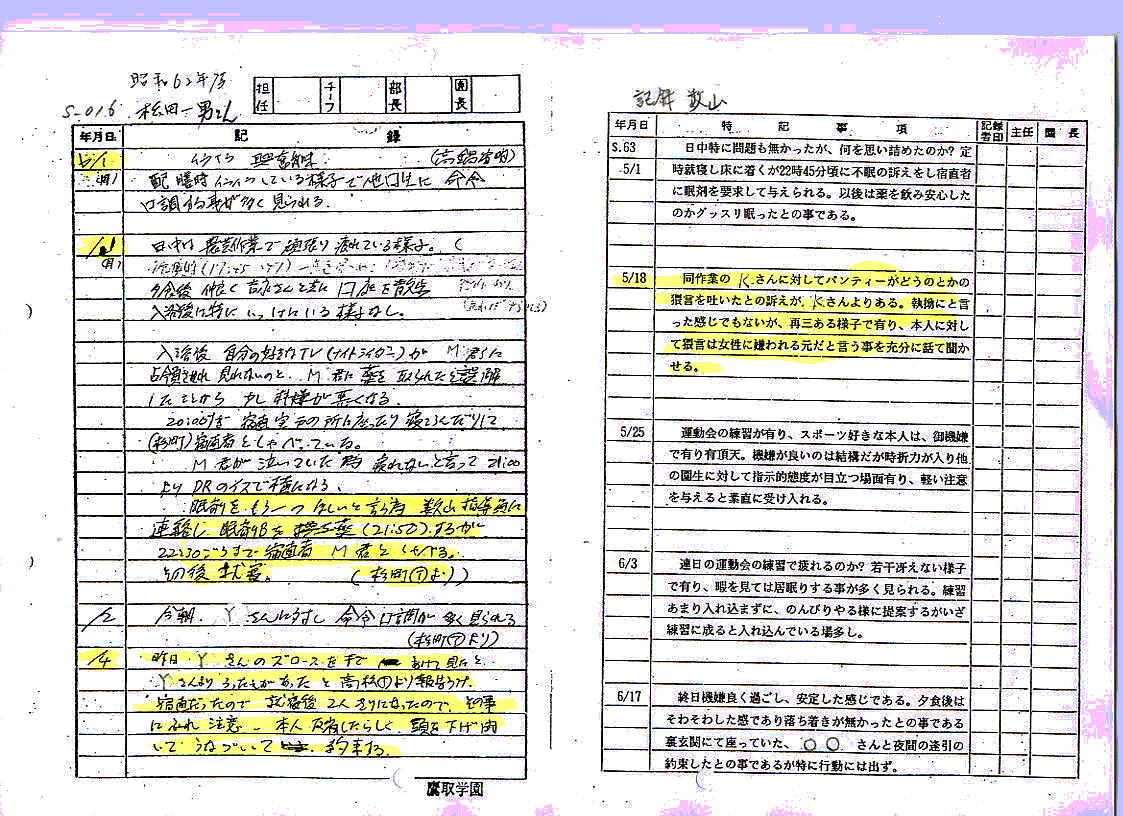 昭和62年度
S-016
担任
チーフ
部長
園長
年月日
記録
5/1
イライラ 興奮
配膳時イライラしている様子で他園生に 命令
口調が多く見られる。
日中は 作業で頑張り疲れている様子。
夕食後 仲良く さんと共に
入浴後は特に いる様子なし。
入浴後 自分の好きなTV(ナイトシイカニ)が M君に
占領され 見れないのと、M君に薬を取られたと誤解
したことから 少し 様が悪くなる。
20:00 宿直室 の所に座ったり寝ころんだりして
(杉町)宿直者としゃべっている。
M君が泣いていた時 疲れないと言って 21:00
よりDRのイスで横になる。
眠剤をもう一つほしいと言う為 数山指導員に
連絡し 眠剤1Bを 薬(21:50)するが
22:30ごろまで宿直者 M君としゃべる。
その後 就寝。 (杉町 より)
/2
今朝、Yさんに対し 命令口調が多く見られる
(杉町 より)
/4
昨日 Yさんのズロースを手で あけて見たと
Yさんより うったえがあったと 高松 より報告うけ、
宿直だったので 就寝後 2人きりになったので、その事
にふれ 注意 - 本人 反省したらしく 頭を下げ
して うなづいて 約束する。
鷹取学園
数山
年月日
特記事項
記録者印
主任
園長
S.63
日中特に問題も無かったが、何を思い詰めたのか?定
5/1
時就寝し床に着くが22時45分頃に不眠の訴えをし宿直者
に眠剤を要求して与えられる。以後は薬を飲み安心した
のかグッスリ眠ったとの事である。
5/18
同作業の K.さんに対してパンティーがどうのとかの
猥言を吐いたとの訴えが、Kさんよりある。執拗にと言
った感じでもないが、再三ある様子で有り、本人に対し
て猥言は女性に嫌われる元だと言う事を充分に話て聞か
せる。
5/25
運動会の練習が有り、スポーツ好きな本人は、御機嫌
で有り有頂天。機嫌が良いのは結構だが時折力が入り他
の園生に対して指示的態度が目立つ場面有り、軽い注意
を与えると素直に受け入れる。
6/3
連日の運動会の練習で疲れるのか?若干冴えない様子
で有り、暇を見ては居眠りする事が多く見られる。練習
あまり入れ込まずに、のんびりやる様に提案するがいざ
練習に成ると入れ込んでいる場多し。
6/17
終日機嫌良く過ごし、安定した感じである。夕食後は
そわそわした感であり落ち着きが無かったとの事である
裏玄関にて座っていた、〇〇 さんと夜間の逢引の
約束したとの事であるが特に行動には出ず。